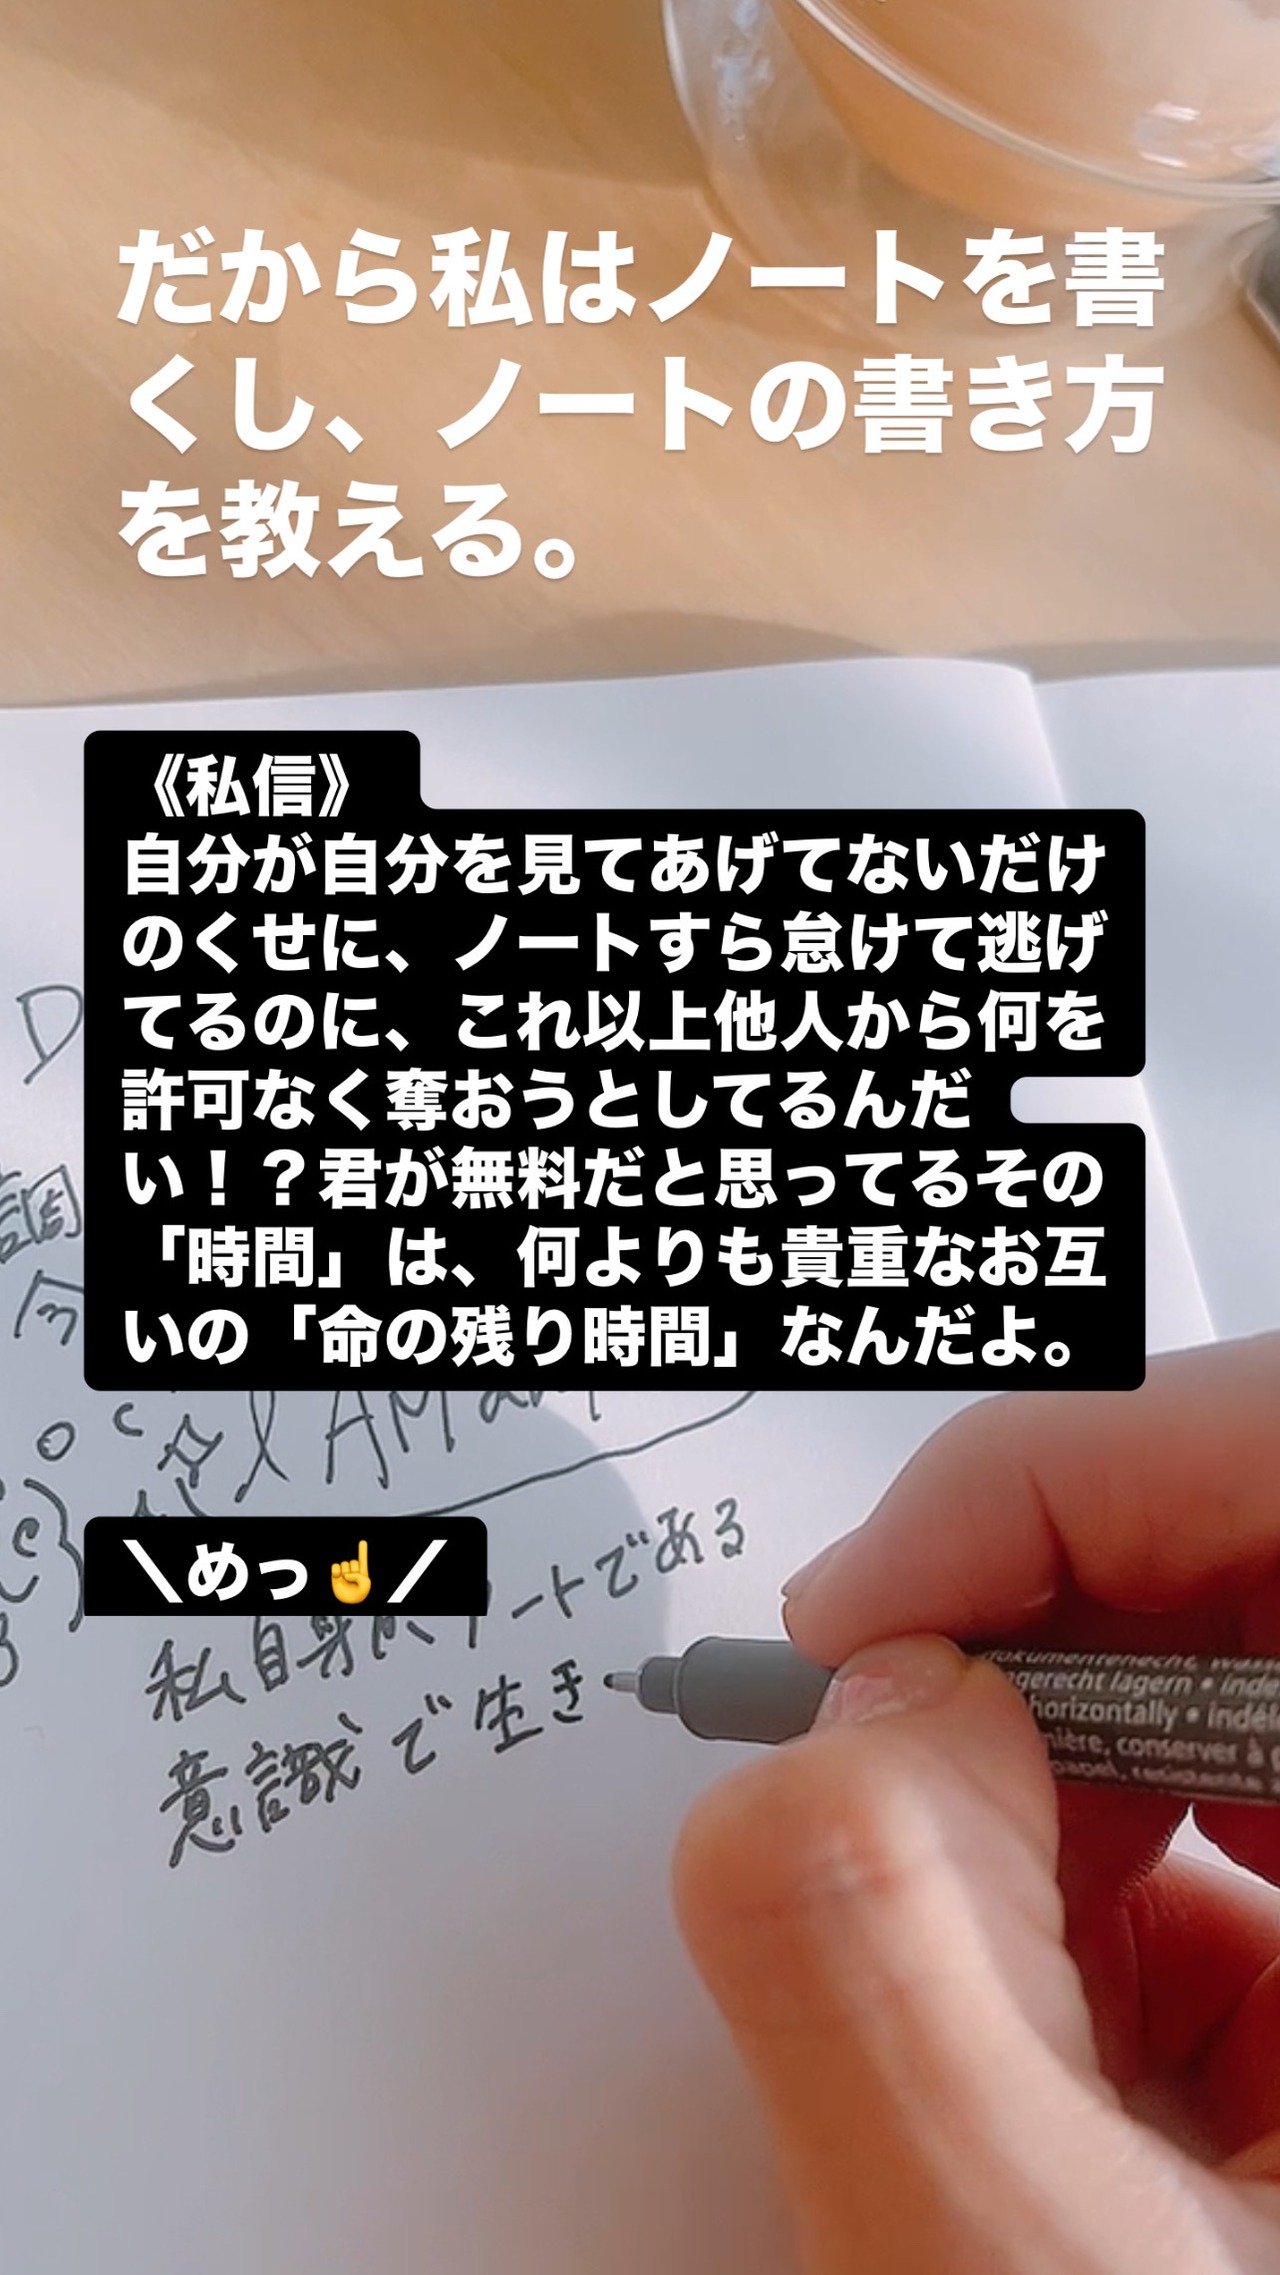 だから私はノートを書
くし、ノートの書き方
を教える。
《私信》
自分が自分を見てあげてないだけ
のくせに、ノートすら怠けて逃げ
てるのに、これ以上他人から何を
許可なく奪おうとしてるんだ
い！？君が無料だと思ってるその
「時間」は、何よりも貴重なお互
いの「命の残り時間」なんだよ。
D
調
今
I AM
＼めっ☝️／
私自身がアートである
意識で生き
horizontally • indel
gerecht lagern • inde
nière, conserver à